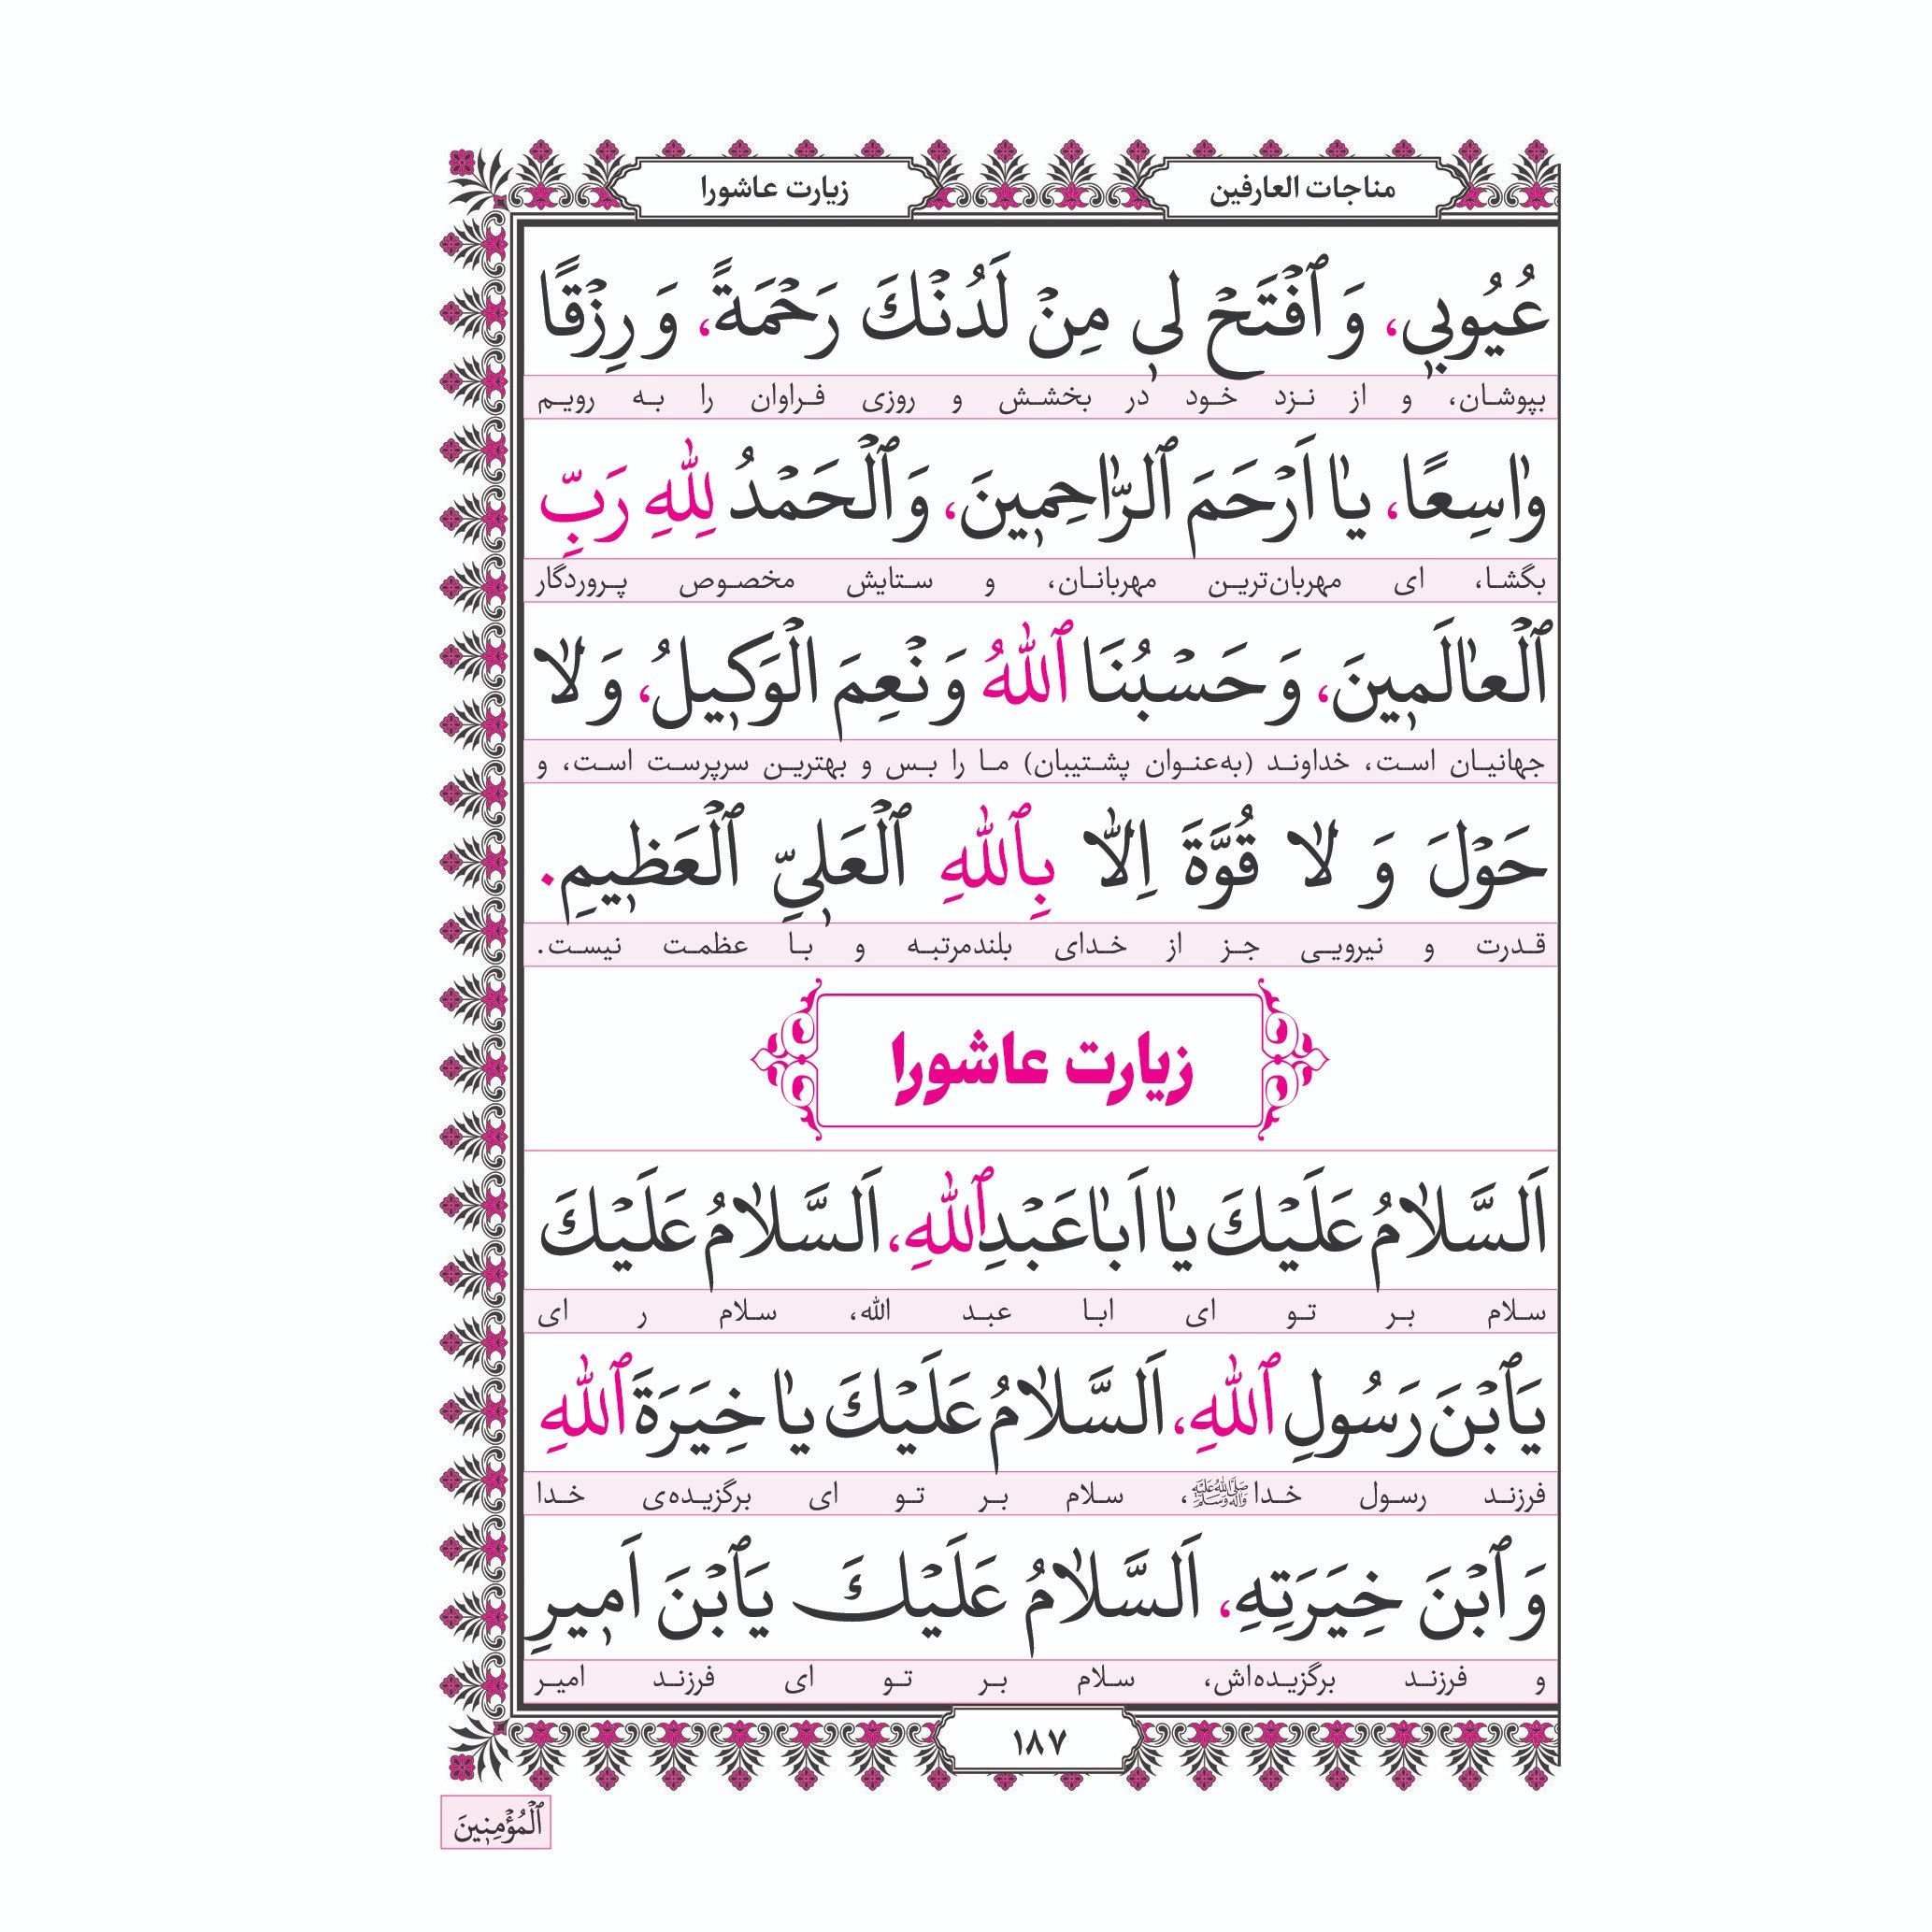 مناجات العارفين
زیارت عاشورا
عُيُوبي، وَ ٱفْتَحْ لي مِنْ لَدُنْكَ رَحْمَةً، وَ رِزْقًا
بپوشان، و از نزد خود در بخشش و روزی فراوان را به رویم
وٰاسِعًا، يٰا اَرْحَمَ ٱلرّٰاحِمينَ، وَ ٱلْحَمْدُ لِلّٰهِ رَبِّ
بگشا، ای مهربان‌ترین مهربانان، و ستایش مخصوص پروردگار
ٱلْعٰالَمينَ، وَ حَسْبُنَا ٱللّٰهُ وَ نْعِمَ الْوَكيلُ، وَ لٰا
جهانیان است، خداوند (به‌عنوان پشتیبان) ما را بس و بهترین سرپرست است، و
حَوْلَ وَ لٰا قُوَّةَ اِلّٰا بِٱللّٰهِ ٱلْعَليِّ ٱلْعَظيمِ.
قدرت و نیرویی جز از خدای بلندمرتبه و با عظمت نیست.
زیارت عاشورا
اَلسَّلٰامُ عَلَيْكَ يٰا اَبٰا عَبْدِ ٱللّٰهِ، اَلسَّلٰامُ عَلَيْكَ
سلام بر تو ای ابا عبد الله، سلام ر ای
يَا ٱبْنَ رَسُولِ ٱللّٰهِ، اَلسَّلٰامُ عَلَيْكَ يٰا خِيَرَةَ ٱللّٰهِ
فرزند رسول خدا صَلَّى اللهُ عَلَيْهِ وَآلِهِ وَسَلَّمَ، سلام بر تو ای برگزیده‌ی خدا
وَ ٱبْنَ خِيَرَتِهِ، اَلسَّلٰامُ عَلَيْكَ يَا ٱبْنَ اَميرِ
و فرزند برگزیده‌اش، سلام بر تو ای فرزند امیر
۱۸۷
ٱلْمُؤْمِنينَ